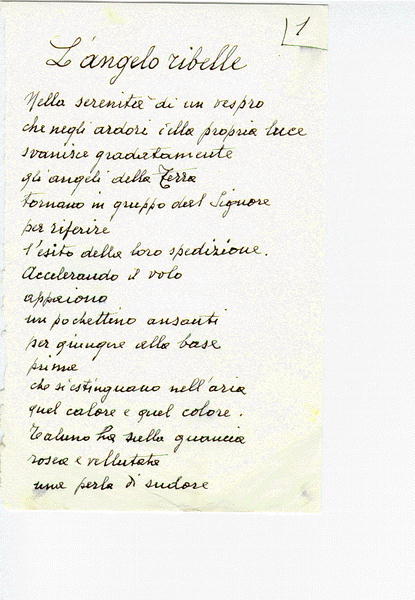 1
L'angelo ribelle
Nella serenità di un vespro
che negli ardori della propria luce
svanisce gradatamente
gli angeli della Terra
tornano in gruppo dal Signore
per riferire
l'esito della loro spedizione.
Accelerando il volo
appaiono
un pochettino ansanti
per giungere alla base
prima
che si estinguano nell'aria
quel calore e quel colore.
Taluno ha sulla guancia
rosea e vellutata
una perla di sudore